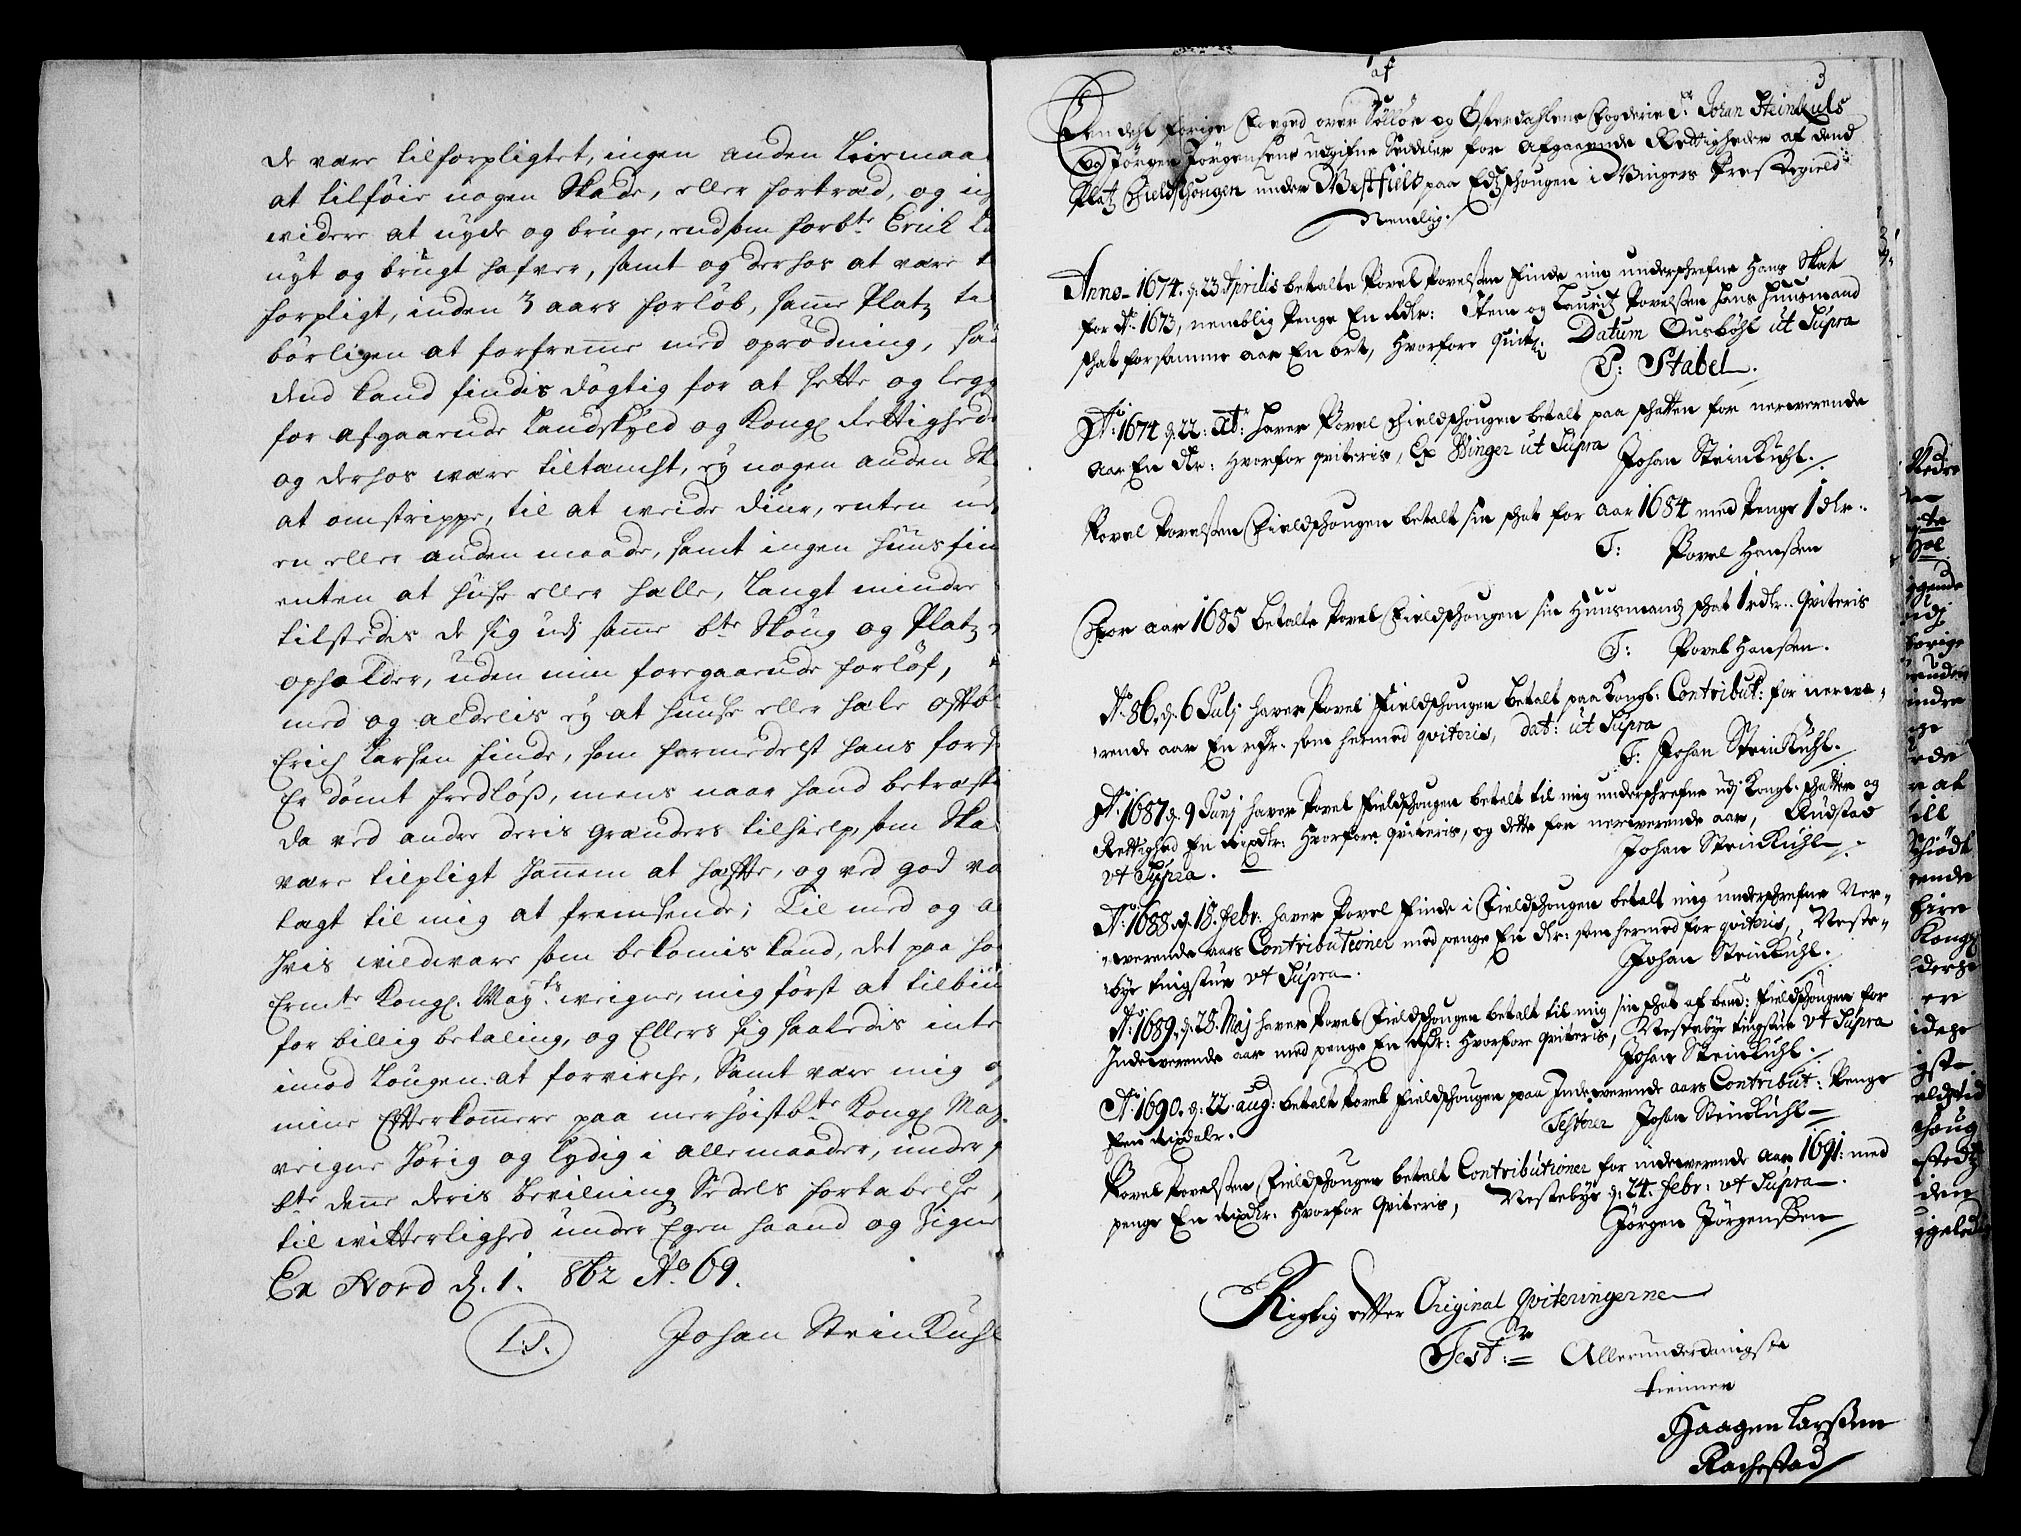 de være tilforpligtet, ingen anden Leiemaa
at tilføie nogen Skade, eller fortræd, og ig
widere at nyde og bruge, end som forbte Erich La
nyt og brugt hafver, samt og derhos at være t
forpligt, inden 3 aars forløb, samme Platz ta
børligen at forfremme med oprødning, saa
dend kand findis døgtig for at sette og legg
for afgaaende Landskyld og Kongl Rettighed
og derhos være tiltænckt, ey nogen anden Sk
at omstrippe, til at veide diur, enten ud
en eller anden maade, samt ingen Huus fin
enten at huse eller hælle, langt mindre
tilstedis de sig udj samme bte Skoug og Platz
opholder, uden min foregaaende forlof,
med og aldelis ey at huuse eller hæle oftbe
Erich Larsen finde, som formedelst hans fors
Er dømt fredløs, mens naar hand betræf
da ved andre deris grænders tilhielp, som Ska
være tilpligt hannem at hæfte, og ved god va
tagt til mig at fremsende; Til med og a
hvis wildvare som bekomis kand, det paa hø
Ermte Kongl. Mayts weigne, mig først at tilbiu
for billig betaling, og Ellers sig saaledis inte
imod Lougen at forvirche, Samt være mig o
mine Efterkommere paa merhøistbte Kongl May
veigne hørig og lydig i alle maader, under
bte denne deris bevilning Sedels fortabelse
til witterlighed under Egen haand og Signe
Ex Nord d. 1. 8b2 Ao 69.
L.S. Johan SteinKuhl
3
af
En dehl forige Foeged over Soløe og Østerdahlens Fogderie Sr. Johan Steinkuls
og Jørgen Jørgensens udgifne Seddeler for Afgaaende Rettigheder af dend
Platz Fieldschougen under Westfield paa Edtzschougen i Wingers Prestegield
Nemlig.
Anno 1674. d. 23 Aprilis betalte Povel Povelsen Finde mig underschrefne Hans Skat
for Ao 1673, nemblig Penge En Rdr: Item og Lauritz Povelsen hans Huusmand
schat for samme aar En ort, hvorfore quit: Datum Ousbøhl ut Supra
P: Stabel.
Ao: 1674 d. 22: xbr: haver Povel Fieldschougen betalt paa schatten for nerverende
aar En dlr: hvorfor qviteris, Ex Winger ut Supra
Johan SteinKuhl.
Povel Povelsen Fieldschougen betalt sin schat for aar 1684 med Penge 1 dlr..
T: Povel Hanßen
For aar 1685 betalte Povel Fieldschougen sin Huusmandz schat 1 rdlr.. qviteris
T: Povel Hanßen.
Ao 86. d. 6 Julj haver Povel Fieldschougen betalt paa Kongl: Contribut: for nerwæ-
rende aar En rdr: som hermed qviteris, dat: ut Supra
T: Johan SteinKuhl.
Ao: 1687 d. 9 Junj haver Povel Fieldschougen betalt til mig underschrefne udj Kongl. schatter og
Rettighed En Rixdlr: hvorfore qviteris, og dette for nerwerende aar, Rudstad
vt Supra.
Johan SteinKuhl.
Ao: 1688 d. 18. febr: haver Povel Finde i Fieldschougen betalt mig underschrefne Ner-
werende aars Contributioner med penge En dlr: som hermed for qviteris, Neste-
bye tingstue vt Supra.
Johan SteinKuhl.
Ao: 1689. d: 28. Maj haver Povel Fieldschougen betalt til mig sin schat af bemd: Fieldschougen for
Indewerende aar med penge En Rdr: hvorfore qviteris, Nestebye tingstue vt Supra
Johan SteinKuhl.
Ao: 1690. d: 22. aug: betalt Povel Fieldschougen paa Indewerende aars Contribut: Penge
Een Rixdalr.
Testerer Johan SteinKuhl
Povel Povelsen Fieldschougen betalt Contributioner for indewerende Aar 1691: med
penge En Rixdlr: hvorfor Qviteris, Nestebye d: 24. febr: vt Supra.
Jørgen Jørgenßen
Rigtig efter Original Qviteringerne
Test: Allerunderdanigste
tienner
Haagen Larßen
Rachestad